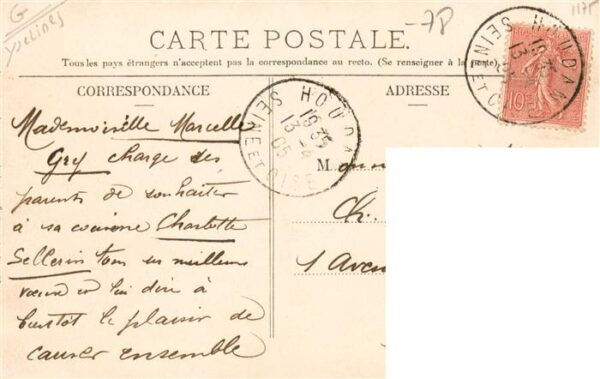 G
Yvelines
-78
1175
CARTE POSTALE.
Tous les pays étrangers n'acceptent pas la correspondance au recto. (Se renseigner à la poste)
CORRESPONDANCE
ADRESSE
HOUDAN
18 35
13 -4
05
SEINE ET OISE
HOUDAN
18 35
13
SEINE ET OISE
10
Mademoiselle Marcelle
Gey charge ses
parents de souhaiter
à sa cousine Charlotte
Sellerin tous ses meilleurs
vœux et lui dire à
bientôt le plaisir de
causer ensemble
M
Ch.
1 Aven